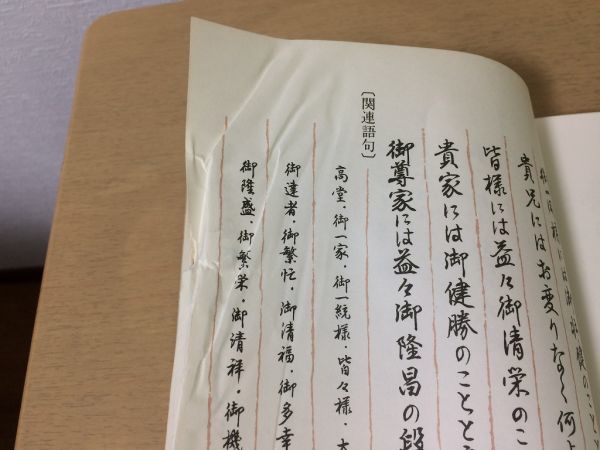 貴兄にはお変りなく何
皆様には益々御清栄のこ
貴家には御健勝のことと
御尊家には益々御隆昌の段
〔関連語句〕
高堂・御一家・御一統様・皆々様・
御達者・御繁忙・御清福・御多幸
御隆盛・御繁栄・御清祥・御機